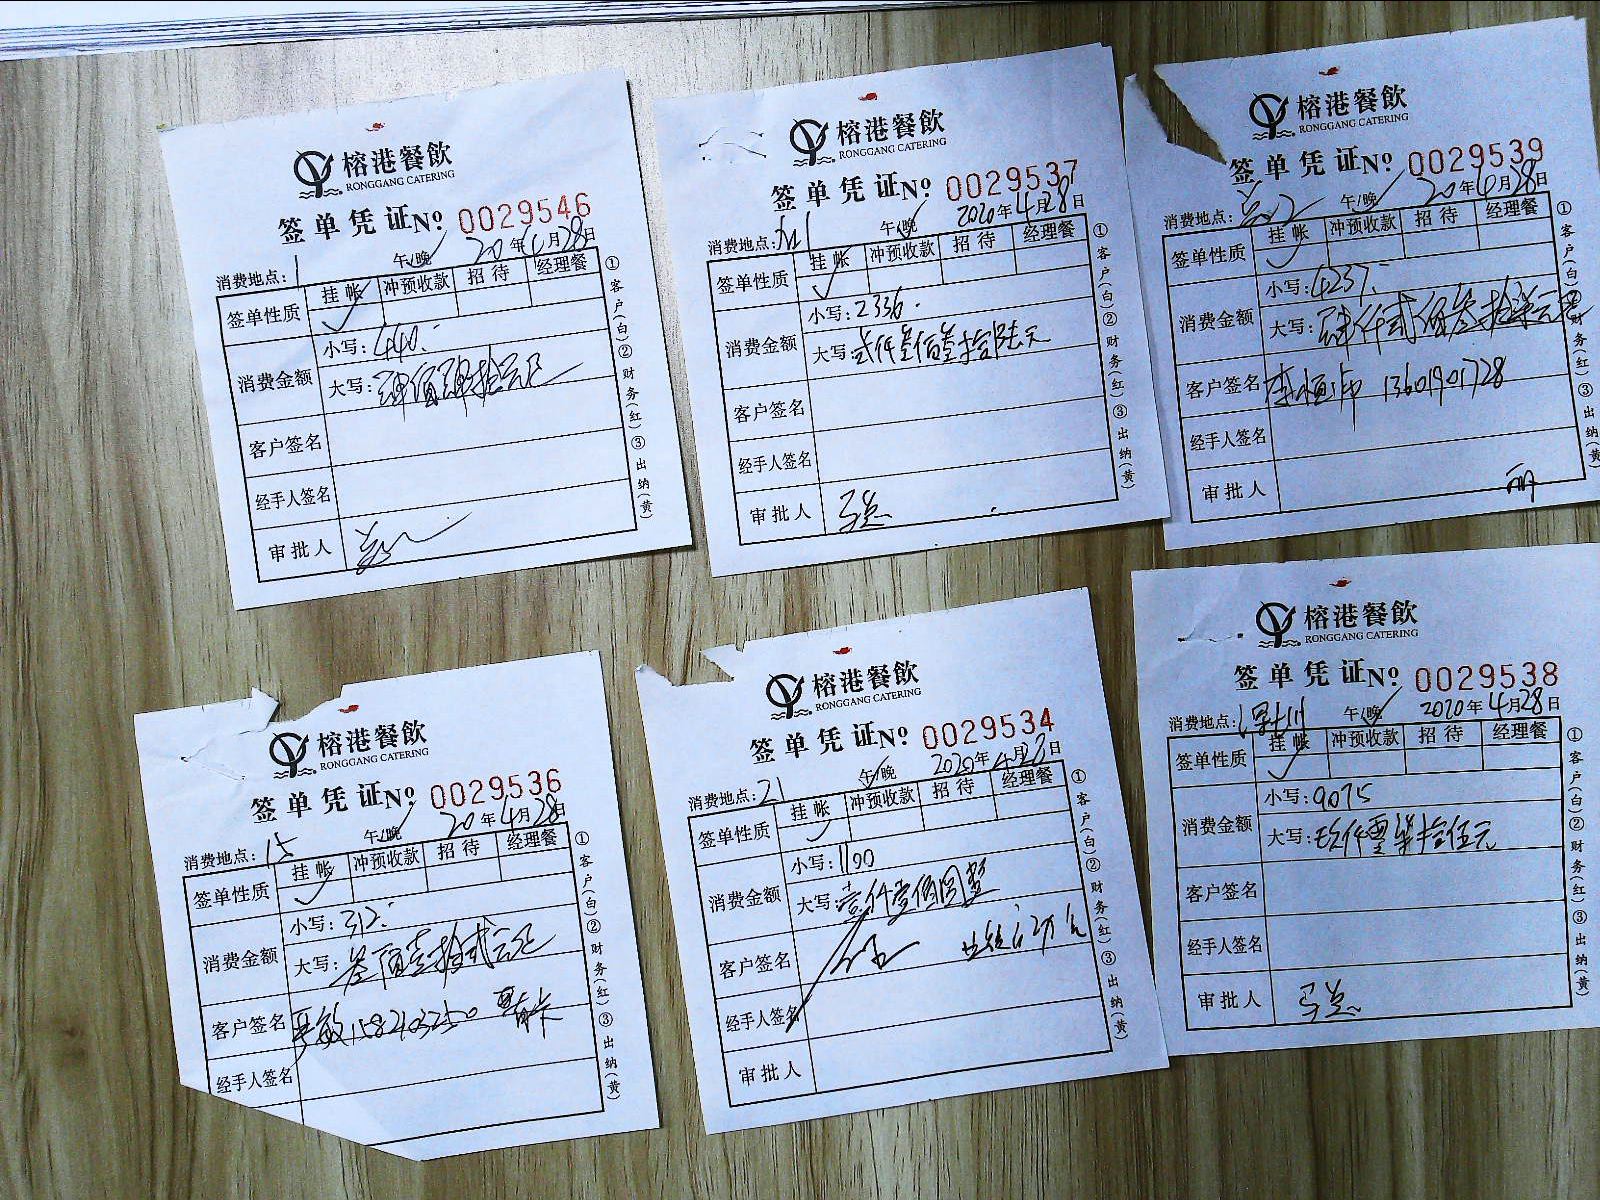 榕港餐飲
RONGGANG CATERING
签单凭证No 0029546
消费地点: 1 午/晚 20年4月28日
签单性质 挂帐 冲预收款 招待 经理餐
消费金额 小写: 440.
大写: 肆佰肆拾元正
客户签名
经手人签名
审批人
①客户(白)②财务(红)③出纳(黄)
榕港餐飲
RONGGANG CATERING
签单凭证No 0029537
消费地点: 午/晚 2020年4月28日
签单性质 挂帐 冲预收款 招待 经理餐
消费金额 小写: 2336.
大写: 弍仟叁佰叁拾陆元
客户签名
经手人签名
审批人
①客户(白)②财务(红)③出纳(黄)
榕港餐飲
RONGGANG CATERING
签单凭证No 0029539
消费地点: 午/晚 20年4月28日
签单性质 挂帐 冲预收款 招待 经理餐
消费金额 小写: 4237.
大写: 肆仟贰佰叁拾柒元正
客户签名 13601901728
经手人签名
审批人
①客户(白)②财务(红)③出纳(黄)
榕港餐飲
RONGGANG CATERING
签单凭证No 0029536
消费地点: 15 午/晚 20年4月28日
签单性质 挂帐 冲预收款 招待 经理餐
消费金额 小写: 312.
大写: 叁佰壹拾贰元正
客户签名
经手人签名
①客户(白)②财务(红)③出纳(黄)
榕港餐飲
RONGGANG CATERING
签单凭证No 0029534
消费地点: 21 午/晚 2020年4月28日
签单性质 挂帐 冲预收款 招待 经理餐
消费金额 小写: 1100
大写: 壹仟壹佰圆整
客户签名
经手人签名
审批人
①客户(白)②财务(红)③出纳(黄)
榕港餐飲
RONGGANG CATERING
签单凭证No 0029538
消费地点: 午/晚 2020年4月28日
签单性质 挂帐 冲预收款 招待 经理餐
消费金额 小写: 9075
大写: 玖仟零柒拾伍元
客户签名
经手人签名
审批人
①客户(白)②财务(红)③出纳(黄)